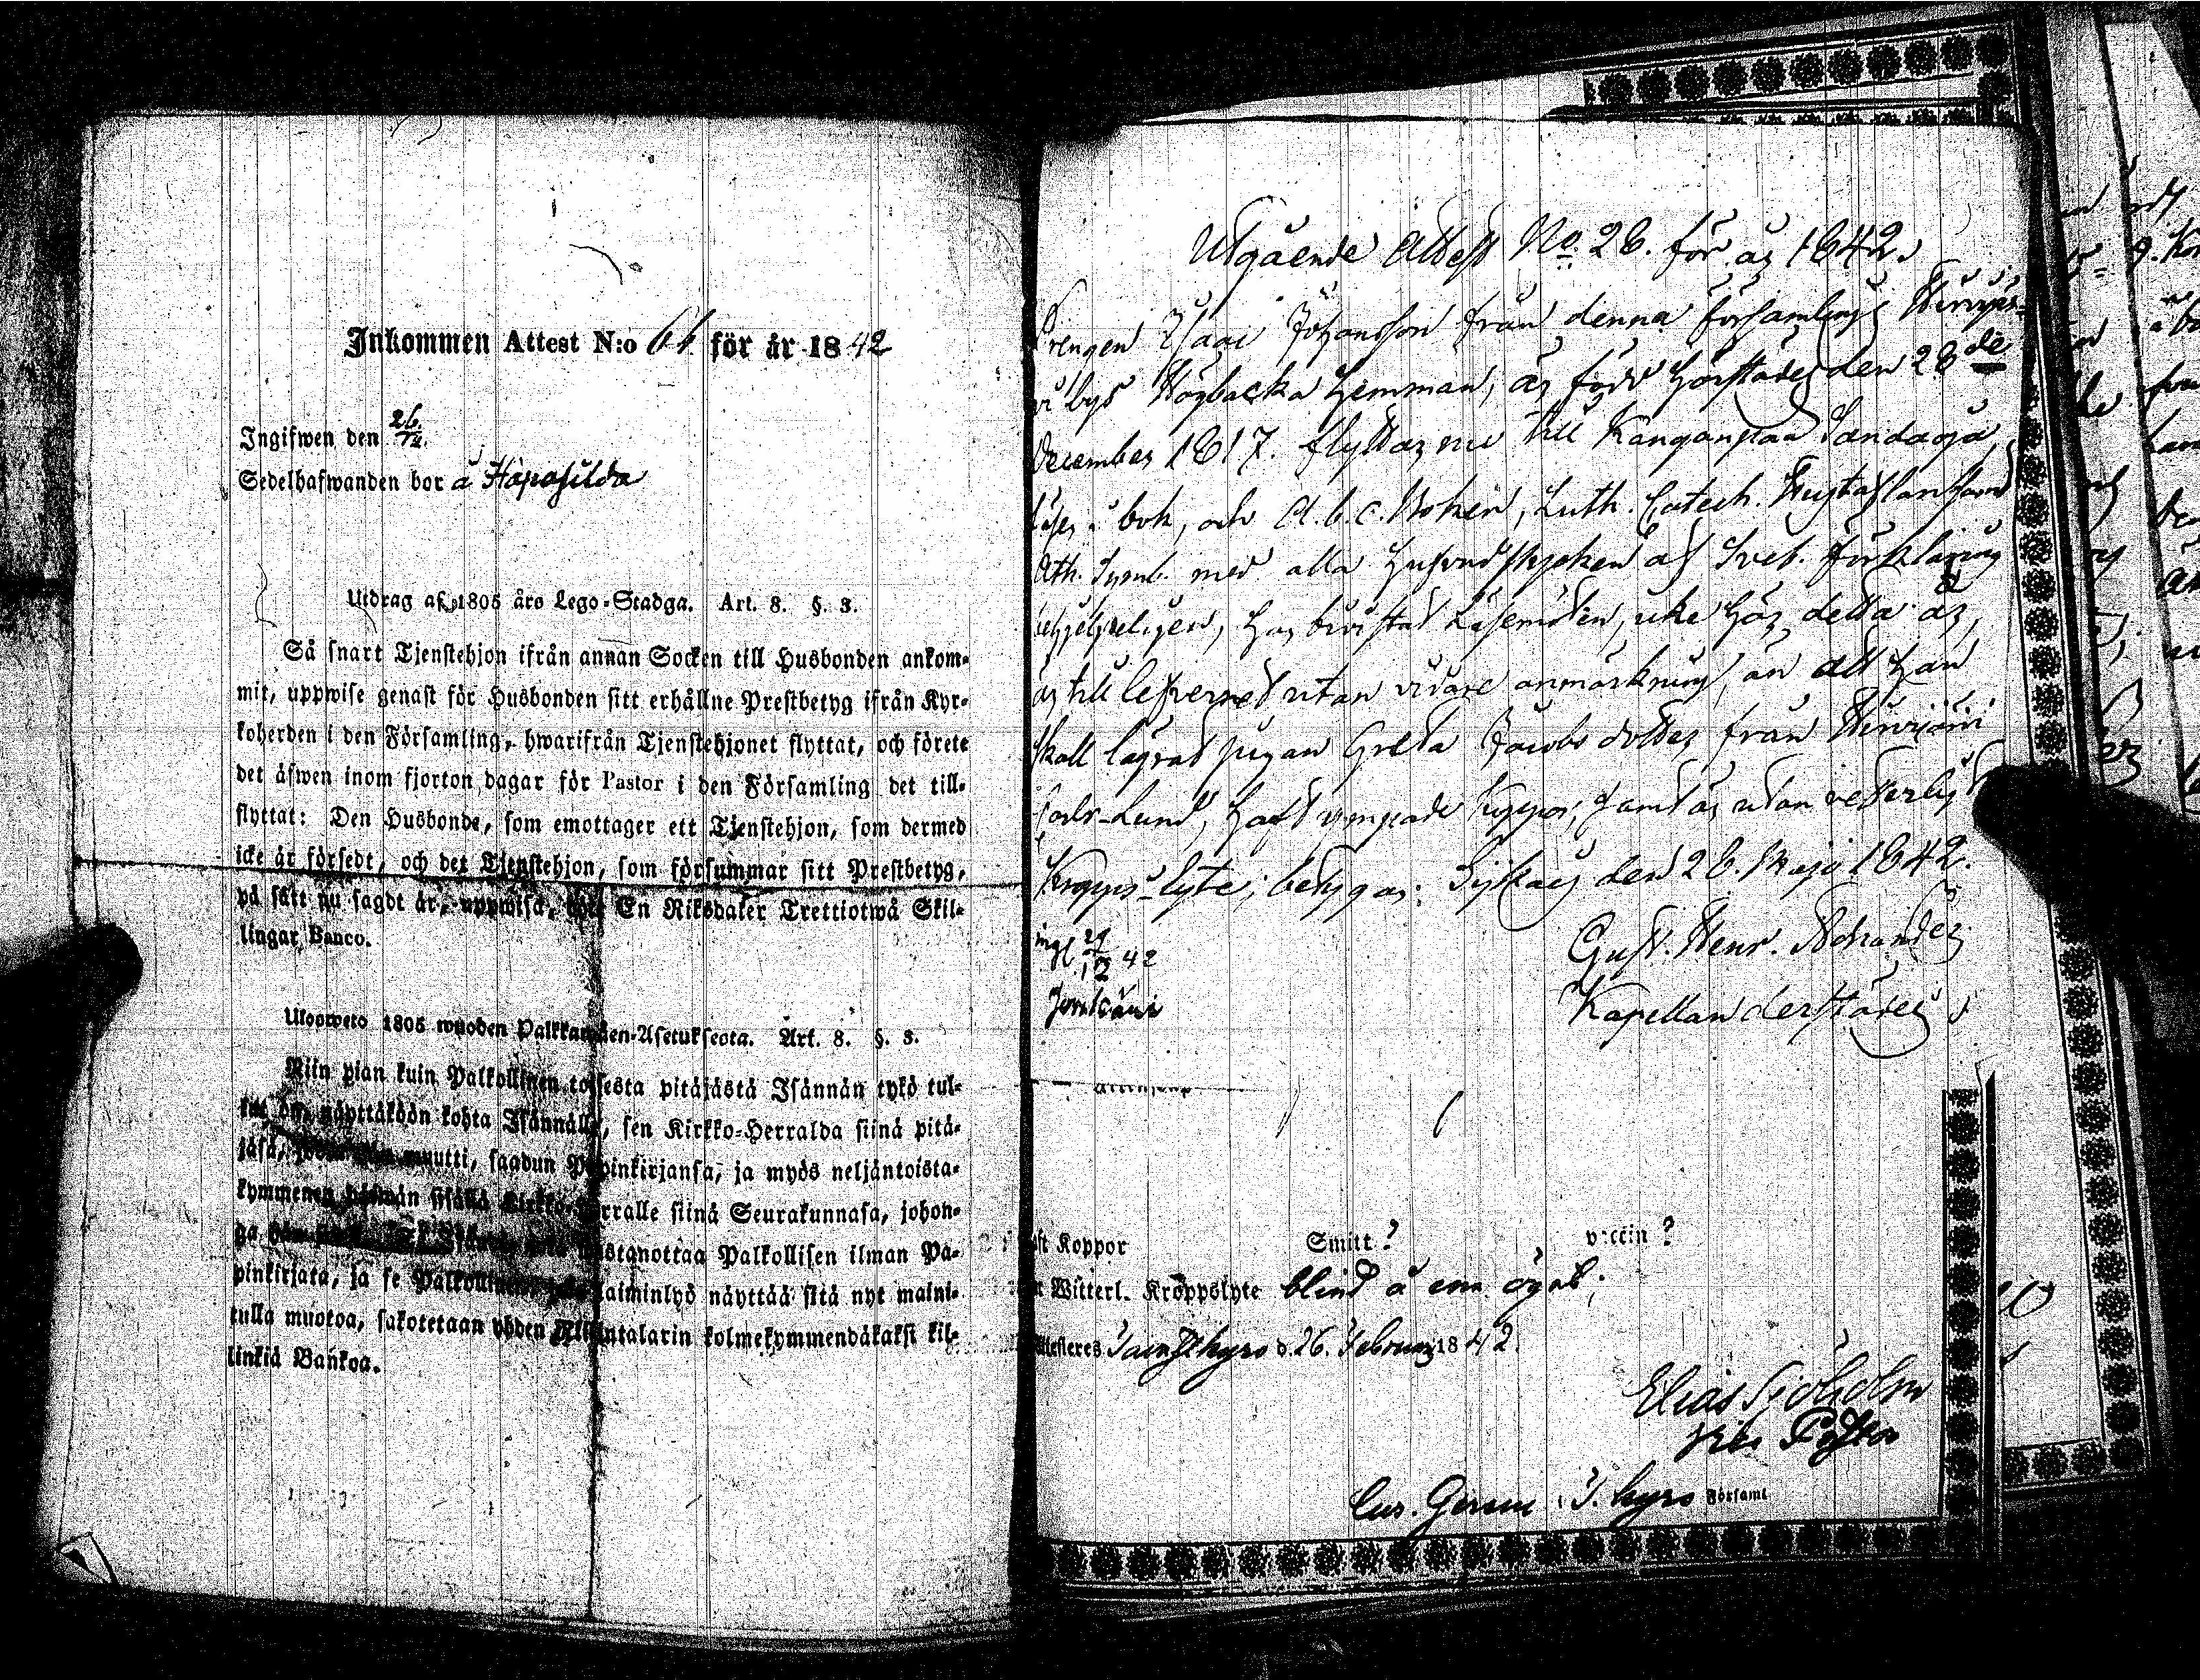 Inkommen Attest N:o 61 för år 1842
Ingifwen den 26/12.
Sedelhafwanden bor å Haposilda
Utdrag af 1805 års Lego-Stadga. Art. 8. §. 3.
Så snart Tjenstehjon ifrån annan Socken till Husbonden ankom-
mit, uppwise genast för Husbonden sitt erhållne Prestbetyg ifrån Kyr-
koherden i den Församling, hwarifrån Tjenstehjonet flyttat, och förete
det äfwen inom fjorton dagar för Pastor i den Församling det till-
flyttat: Den Husbonde, som emottager ett Tjenstehjon, som dermed
icke är försedt, och det Tjenstehjon, som försummar sitt Prestbetyg,
på sätt nu sagdt är, uppwisa, En Riksdaler Trettiotwå Skil-
lingar Banco.
Uloswето 1805 wuoden Palkkawäen-Asetuksesta. Art. 8. §. 3.
Niin pian kuin Palkollinen toisesta pitäjästä Isännän tykö tul-
lut on, näyttäköön kohta Isännälle, sen Kirkko-Herralda siinä pitä-
jäsä, muutti, saadun Papinkirjansa, ja myös neljäntoista-
kymmenen päiwän sisällä Kirkko-Herralle siinä Seurakunnasa, johon-
ga wastanottaa Palkollisen ilman Pa-
pinkirjata, ja se Palkollinen laiminlyö näyttää sitä nyt maini-
tulla muotoa, sakotetaan yhden Riksintalarin kolmekymmendäkaksi kil-
linkiä Bankoa.
Utgående Attest No. 28. för år 1842.
Drengen Isaac Johansson från denna församlings
bys Högbacka hemman, är född härstädes den 28de
December 1817. flyttar nu till Kanganpää
bok, och A.b.c. boken, Luth. Catech. Hustaflan samt
Ath. Symb. med alla hufvudstycken af Sveb. förklaring
hjelpeligen, har bivistat Läsemöten, icke här detta år,
är till lefvernet utan vidare anmärkning, än att han
skall lägrat pigan Greta Jacobs dotter från
Lund, haft ympade koppor, samt är utan vetterligt
Kropps-lyte; betygar: den 28. Maji 1842.
ingl 29/12 42
Gust. Henr.
Kapellan derstädes
Koppor Smitt? vaccin?
Witterl. Kroppslyte blind å ena ögat;
Attesteras d. 26. Februarii 1842.
Elias Sjöholm
Vice Pastor
i S. kyro Församl